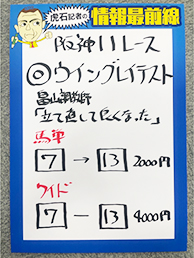 虎石記者の
情報最前線
阪神11レース
◎ウイングレイテスト
畠山調教師
「立て直して良くなった」
馬単
7 → 13 2000円
ワイド
7 — 13 4000円